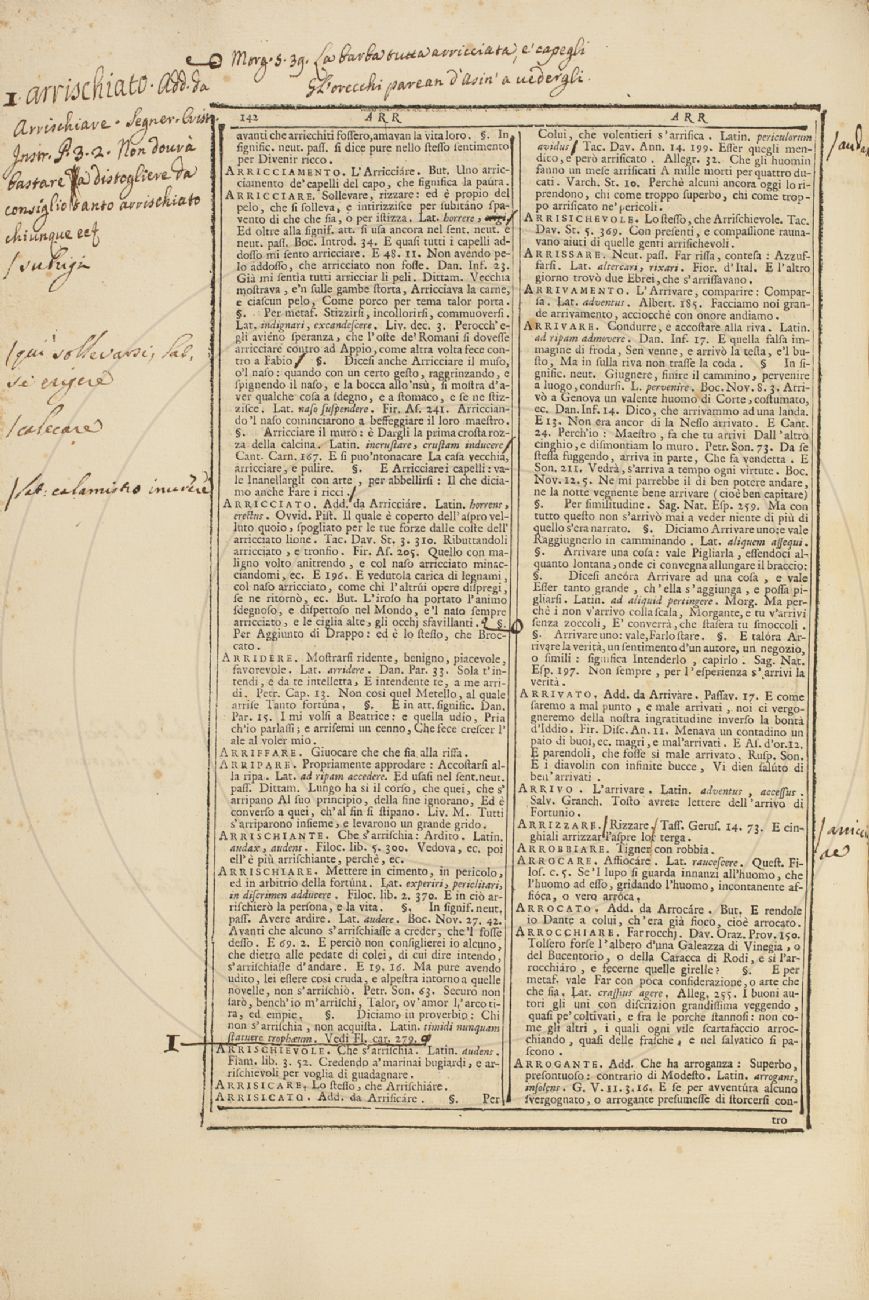 Morg. 5. 39. La barba tutta arricciata, e' capegli
Gl'orecchi parean d'Asin' a vedergli.
1. arrischiato. Add. da
Arrischiare. Segner. Crist.
Instr. P. 3. 2. Non dovrà
bastare a distogliere da
consiglio tanto arrischiato
chiunque
/ qui sollevarsi, Lat.
se erigere
/ calcare
/ Lat. calamistro inurere
142 ARR
avanti che arricchiti fossero, amavan la vita loro. §. In
signific. neut. pass. si dice pure nello stesso sentimento
per Divenir ricco.
ARRICCIAMENTO. L'Arricciáre. But. Uno arric-
ciamento de'capelli del capo, che significa la paúra.
ARRICCIARE. Sollevare, rizzare: ed è proprio del
pelo, che si solleva, e intirizzisce per subitáno spa-
vento di che che sia, o per istizza. Lat. horrere,
Ed oltre alla signif. att. si usa ancora nel sent. neut. e
neut. pass. Boc. Introd. 34. E quasi tutti i capelli ad-
dosso mi sento arricciare. E 48. 11. Non avendo pe-
lo addosso, che arricciato non fosse. Dan. Inf. 23.
Già mi sentia tutti arricciar li peli. Dittam. Vecchia
mostrava, e'n sulle gambe storta, Arricciava la carne,
e ciascun pelo, Come porco per tema talor porta.
§. Per metaf. Stizzirsi, incollorirsi, commuoversi.
Lat. indignari, excandescere. Liv. dec. 3. Perocch'e-
gli aviéno speranza, che l'oste de'Romani si dovesse
arricciare contro ad Appio, come altra volta fece con-
tro a Fabio / §. Dicesi anche Arricciare il muso,
o'l naso: quando con un certo gesto, raggrinzando, e
spignendo il naso, e la bocca allo'nsù, si mostra d'a-
ver qualche cosa a sdegno, e a stomaco, e se ne stiz-
zisce. Lat. naso suspendere. Fir. As. 241. Arriccian-
do'l naso cominciarono a beffeggiare il loro maestro.
§. Arricciare il muro: è Dargli la prima crosta roz-
za della calcina. Latin. incrustare, crustam inducere /
Cant. Carn. 167. E si puo'ntonacare La casa vecchia,
arricciare, e pulire. §. E Arricciare i capelli: va-
le Inanellargli con arte, per abbellirsi: Il che dicia-
mo anche Fare i ricci. /
ARRICCIATO. Add. da Arricciáre. Latin. horrens,
erectus. Ovvid. Pist. Il quale è coperto dell'aspro vel-
luto quoio, spogliato per le tue forze dalle coste dell'
arricciato lione. Tac. Dav. St. 3. 310. Ributtandoli
arricciato, e tronfio. Fir. As. 205. Quello con ma-
ligno volto anitrendo, e col naso arricciato minac-
ciandomi, ec. E 196. E vedutola carica di legnami,
col naso arricciato, come chi l'altrúi opere dispregi,
se ne ritornò, ec. But. L'iroso ha portato l'animo
sdegnoso, e dispettoso nel Mondo, e'l naso sempre
arricciato, e le ciglia alte, gli occhj sfavillanti. §.
Per Aggiunto di Drappo: ed è lo stesso, che Broc-
cato.
ARRIDERE. Mostrarsi ridente, benigno, piacevole,
favorevole. Lat. arridere. Dan. Par. 33. Sola t'in-
tendi, e da te intelletta, E intendente te, a me arri-
di. Petr. Cap. 13. Non così quel Metello, al quale
arrise Tanto fortúna, §. E in att. signific. Dan.
Par. 15. I mi volsi a Beatrice: e quella udío, Pria
ch'io parlassi; e arrisemi un cenno, Che fece crescer l'
ale al voler mio.
ARRIFFARE. Giuocare che che sia alla riffa.
ARRIPARE. Propriamente approdare: Accostarsi al-
la ripa. Lat. ad ripam accedere. Ed usasi nel sent. neut.
pass. Dittam. Lungo ha si il corso, che quei, che s'
arripano Al suo principio, della fine ignorano, Ed è
converso a quei, ch'al fin si stipano. Liv. M. Tutti
s'arriparono insieme, e levarono un grande grido.
ARRISCHIANTE. Che s'arrischia: Ardito. Latin.
audax, audens. Filoc. lib. 5. 300. Vedova, ec. poi
ell'è più arrischiante, perchè, ec.
ARRISCHIARE. Mettere in cimento, in pericolo,
ed in arbitrio della fortúna. Lat. experiri, periclitari,
in discrimen adducere. Filoc. lib. 2. 370. E in ciò ar-
rischierò la persona, e la vita. §. In signif. neut.
pass. Avere ardire. Lat. audere. Boc. Nov. 27. 42.
Avanti che alcuno s'arrischiasse a creder, che'l fosse
desso. E 69. 2. E perciò non consiglierei io alcuno,
che dietro alle pedate di colei, di cui dire intendo,
s'arrischiasse d'andare. E 19. 16. Ma pure avendo
udito, lei essere così cruda, e alpestra intorno a quelle
novelle, non s'arrischiò. Petr. Son. 63. Securo non
sarò, bench'io m'arrischi, Talor, ov'amor l'arco ti-
ra, ed empie. §. Diciamo in proverbio: Chi
non s'arrischia, non acquista. Latin. timidi nunquam
statuere trophæum. Vedi Fl. car. 279.
1
ARRISCHIEVOLE. Che s'arrischia. Latin. audens.
Fiam. lib. 3. 52. Credendo a'marinai bugiardi, e ar-
rischievoli per voglia di guadagnare.
ARRISICARE. Lo stesso, che Arrischiáre.
ARRISICATO. Add. da Arrisicáre. §. Per
ARR
Colui, che volentieri s'arrisica. Latin. periculorum
avidus / Tac. Dav. Ann. 14. 199. Esser quegli men-
dico, e però arrisicato. Allegr. 32. Che gli huomin
fanno un mese arrisicati A mille morti per quattro du-
cati. Varch. St. 10. Perchè alcuni ancora oggi lo ri-
prendono, chi come troppo superbo, chi come trop-
po arrisicato ne'pericoli.
ARRISICHEVOLE. Lo stesso, che Arrischievole. Tac.
Dav. St. 5. 369. Con presenti, e compassione rauna-
vano aiuti di quelle genti arrisichevoli.
ARRISSARE. Neut. pass. Far rissa, contesa: Azzuf-
farsi. Lat. altercari, rixari. Fior. d'Ital. E l'altro
giorno trovò due Ebrei, che s'arrissavano.
ARRIVAMENTO. L'Arrivare, comparire: Compar-
sa. Lat. adventus. Albert. 185. Facciamo noi gran-
de arrivamento, acciocchè con onore andiamo.
ARRIVARE. Condurre, e accostare alla riva. Latin.
ad ripam admovere. Dan. Inf. 17. E quella falsa im-
magine di froda, Sen venne, e arrivò la testa, e'l bu-
sto, Ma in sulla riva non trasse la coda. §. In si-
gnific. neut. Giugnere, finire il cammino, pervenire
a luogo, condursi. L. pervenire. Boc. Nov. 8. 3. Arri-
vò a Genova un valente huomo di Corte, costumato,
ec. Dan. Inf. 14. Dico, che arrivammo ad una landa.
E 13. Non era ancor di là Nesso arrivato. E Cant.
24. Perch'io: Maestro, fa che tu arrivi Dall'altro
cinghio, e dismontiam lo muro. Petr. Son. 73. Da se
stessa fuggendo, arriva in parte, Che fa vendetta. E
Son. 211. Vedrà, s'arriva a tempo ogni virtute. Boc.
Nov. 12. 5. Ne mi parrebbe il di ben potere andare,
ne la notte vegnente bene arrivare (cioè ben capitare)
§. Per similitudine. Sag. Nat. Esp. 259. Ma con
tutto questo non s'arrivò mai a veder niente di più di
quello s'era narrato. §. Diciamo Arrivare uno: e vale
Raggiugnerlo in camminando. Lat. aliquem assequi.
§. Arrivare una cosa: vale Pigliarla, essendoci al-
quanto lontana, onde ci convenga allungare il braccio:
§. Dicesi ancóra Arrivare ad una cosa, e vale
Esser tanto grande, ch'ella s'aggiunga, e possa pi-
gliarsi. Latin. ad aliquid pertingere. Morg. Ma per-
chè i non v'arrivo colla scala, Morgante, e tu v'arrivi
senza zoccoli, E' converrà, che stasera tu smoccoli.
§. Arrivare uno: vale, Farlo stare. §. E talóra Ar-
rivare la verità, un sentimento d'un autore, un negozio,
o simili: significa Intenderlo, capirlo. Sag. Nat.
Esp. 197. Non sempre, per l'esperienza s'arrivi la
verità.
ARRIVATO, Add. da Arrivare. Passav. 17. E come
saremo a mal punto, e male arrivati, noi ci vergo-
gneremo della nostra ingratitudine inverso la bontà
d'Iddio. Fir. Disc. An. 11. Menava un contadino un
paio di buoi, ec. magri, e mal'arrivati. E As. d'or. 12.
E parendoli, che fosse sì male arrivato. Rusp. Son.
E i diavolin con infinite bucce, Vi dien salúto di
ben'arrivati.
ARRIVO. L'arrivare. Latin. adventus, accessus.
Salv. Granch. Tosto avrete lettere dell'arrivo di
Fortunio.
ARRIZZARE. / Rizzare / Tass. Gerus. 14. 73. E cin-
ghiali arrizzar l'aspre lor terga.
ARROBBIARE. Tigner con robbia.
ARROCARE. Affiocáre. Lat. raucescere. Quest. Fi-
los. c. 5. Se'l lupo si guarda innanzi all'huomo, che
l'huomo ad esso, gridando l'huomo, incontanente af-
fióca, o vero arróca.
ARROCATO. Add. da Arrocáre. But. E rendole
io Dante a colui, ch'era già fioco, cioè arrocato.
ARROCCHIARE. Far rocchj. Dav. Oraz. Prov. 150.
Tolsero forse l'albero d'una Galeazza di Vinegia, o
del Bucentorio, o della Caracca di Rodi, e si l'ar-
rocchiáro, e fecerne quelle girelle? §. E per
metaf. vale Far con poca considerazione, o arte che
che sia. Lat. crassius agere. Alleg. 255. I buoni au-
tori gli uni con discrizion grandissima veggendo,
quasi pe'coltivati, e fra le porche stannosi: non co-
me gli altri, i quali ogni vile scartafaccio arroc-
chiando, quasi delle frasche, e nel salvatico si pa-
scono.
ARROGANTE. Add. Che ha arroganza: Superbo,
presontuoso: contrario di Modesto. Latin. arrogans,
insolens. G. V. 11. 3. 16. E se per avventúra alcuno
svergognato, o arrogante presumesse di storcersi con-
tro